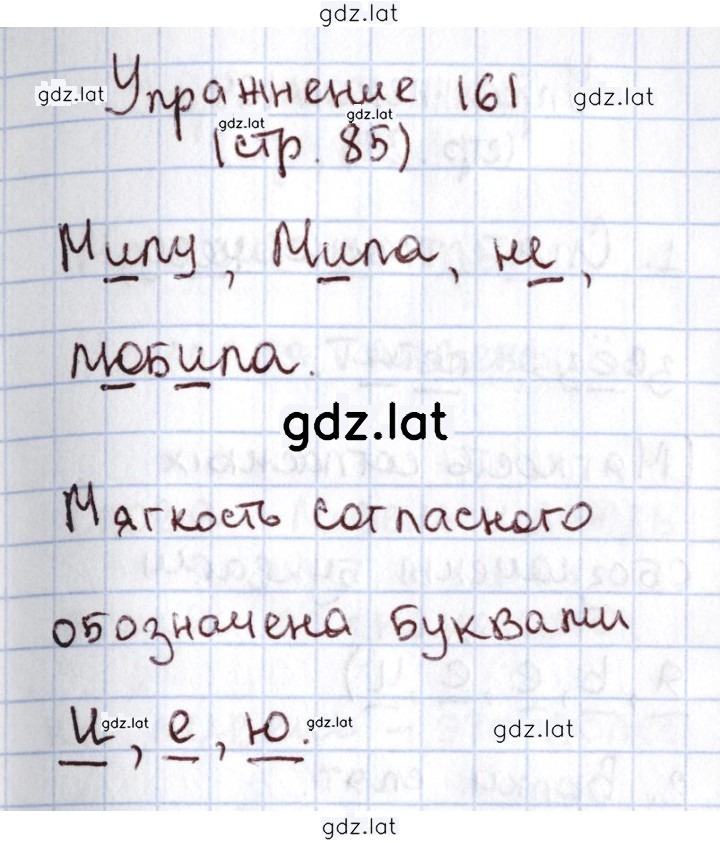 gdz.lat
Упражнение 161
gdz.lat gdz.lat
gdz.lat gdz.lat
(стр. 85)
Милу, Мила, не,
любила.
gdz.lat
Мягкость согласного
обозначена буквами
и, е, ю.
gdz.lat gdz.lat gdz.lat
gdz.lat